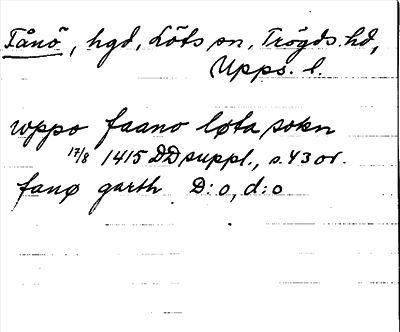 Fånö, hgd, Löts sn, Trögds hd,
Upps. l.
wppo faano løta sokn
17/8 1415 DD suppl., s. 43 or.
fanø garth D:o, d:o